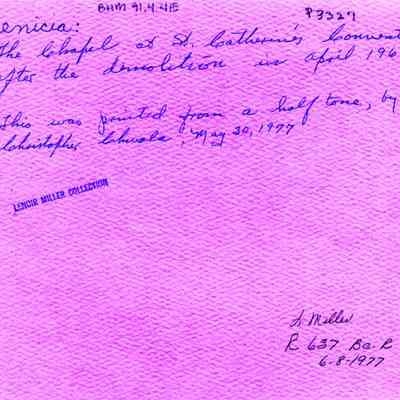 BHM 91.4.4E
P3327
enicia:
The Chapel at St. Catherine's Convent
after the demolition in april 196
This was printed from a half tone, by
Christopher Chwala, May 30, 1977
LENOIR MILLER COLLECTION
L. Miller
R 637 Ba. R
6-8-1977